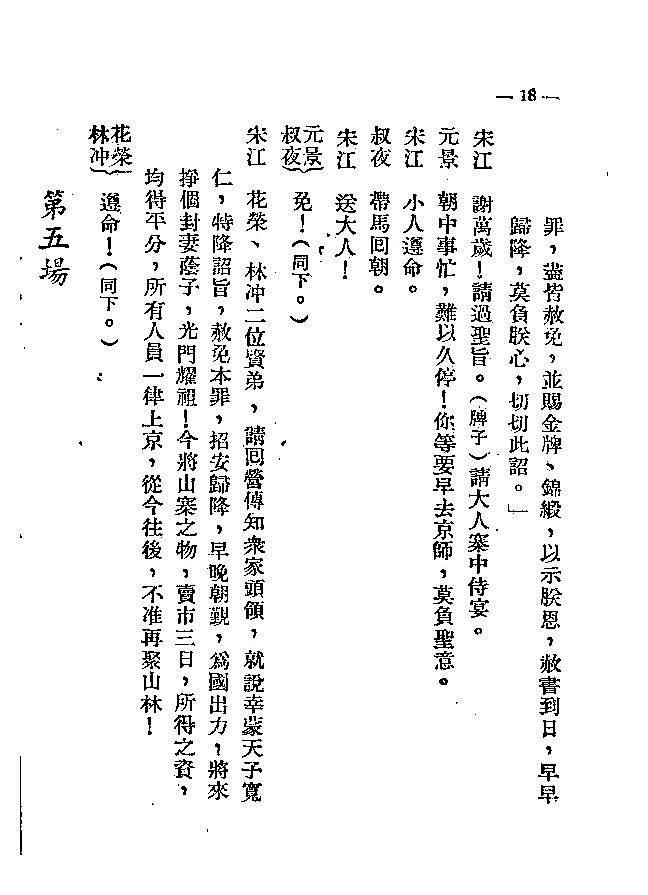 — 18 —
罪，盡皆赦免，並賜金牌、錦緞，以示朕恩，赦書到日，早早
歸降，莫負朕心，切切此詔。」
宋江　謝萬歲！請過聖旨。（牌子）請大人寨中侍宴。
元景　朝中事忙，難以久停！你等要早去京師，莫負聖意。
宋江　小人遵命。
叔夜　帶馬回朝。
宋江　送大人！
元景
叔夜　免！（同下。）
宋江　花榮、林冲二位賢弟，請回營傳知衆家頭領，就說幸蒙天子寬
仁，特降詔旨，赦免本罪，招安歸降，早晚朝覲，爲國出力，將來
掙個封妻蔭子，光門耀祖！今將山寨之物，賣市三日，所得之資，
均得平分，所有人員一律上京，從今往後，不准再聚山林！
花榮
林冲　遵命！（同下。）
第五場